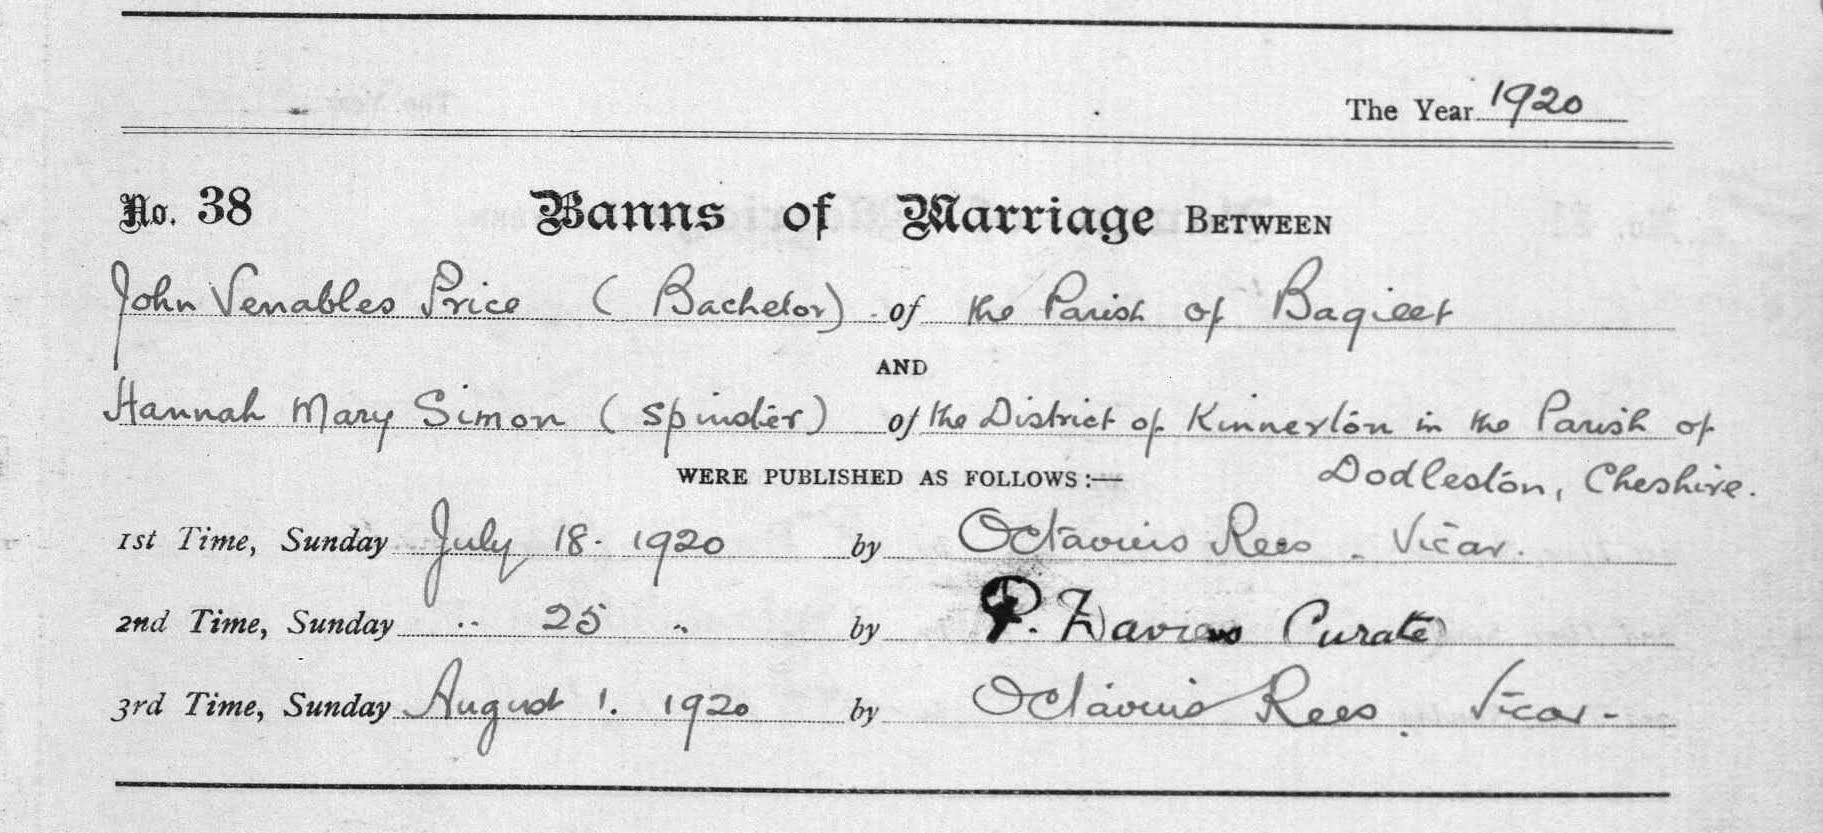 The Year 1920
No. 38 Banns of Marriage BETWEEN
John Venables Price (Bachelor) of the Parish of Bagillt
AND
Hannah Mary Simon (Spinster) of the District of Kinnerton in the Parish of
Dodleston, Cheshire.
WERE PUBLISHED AS FOLLOWS:—
1st Time, Sunday July 18. 1920 by Octavius Rees. Vicar.
2nd Time, Sunday " 25 " by P. Davies Curate
3rd Time, Sunday August 1. 1920 by Octavius Rees. Vicar.